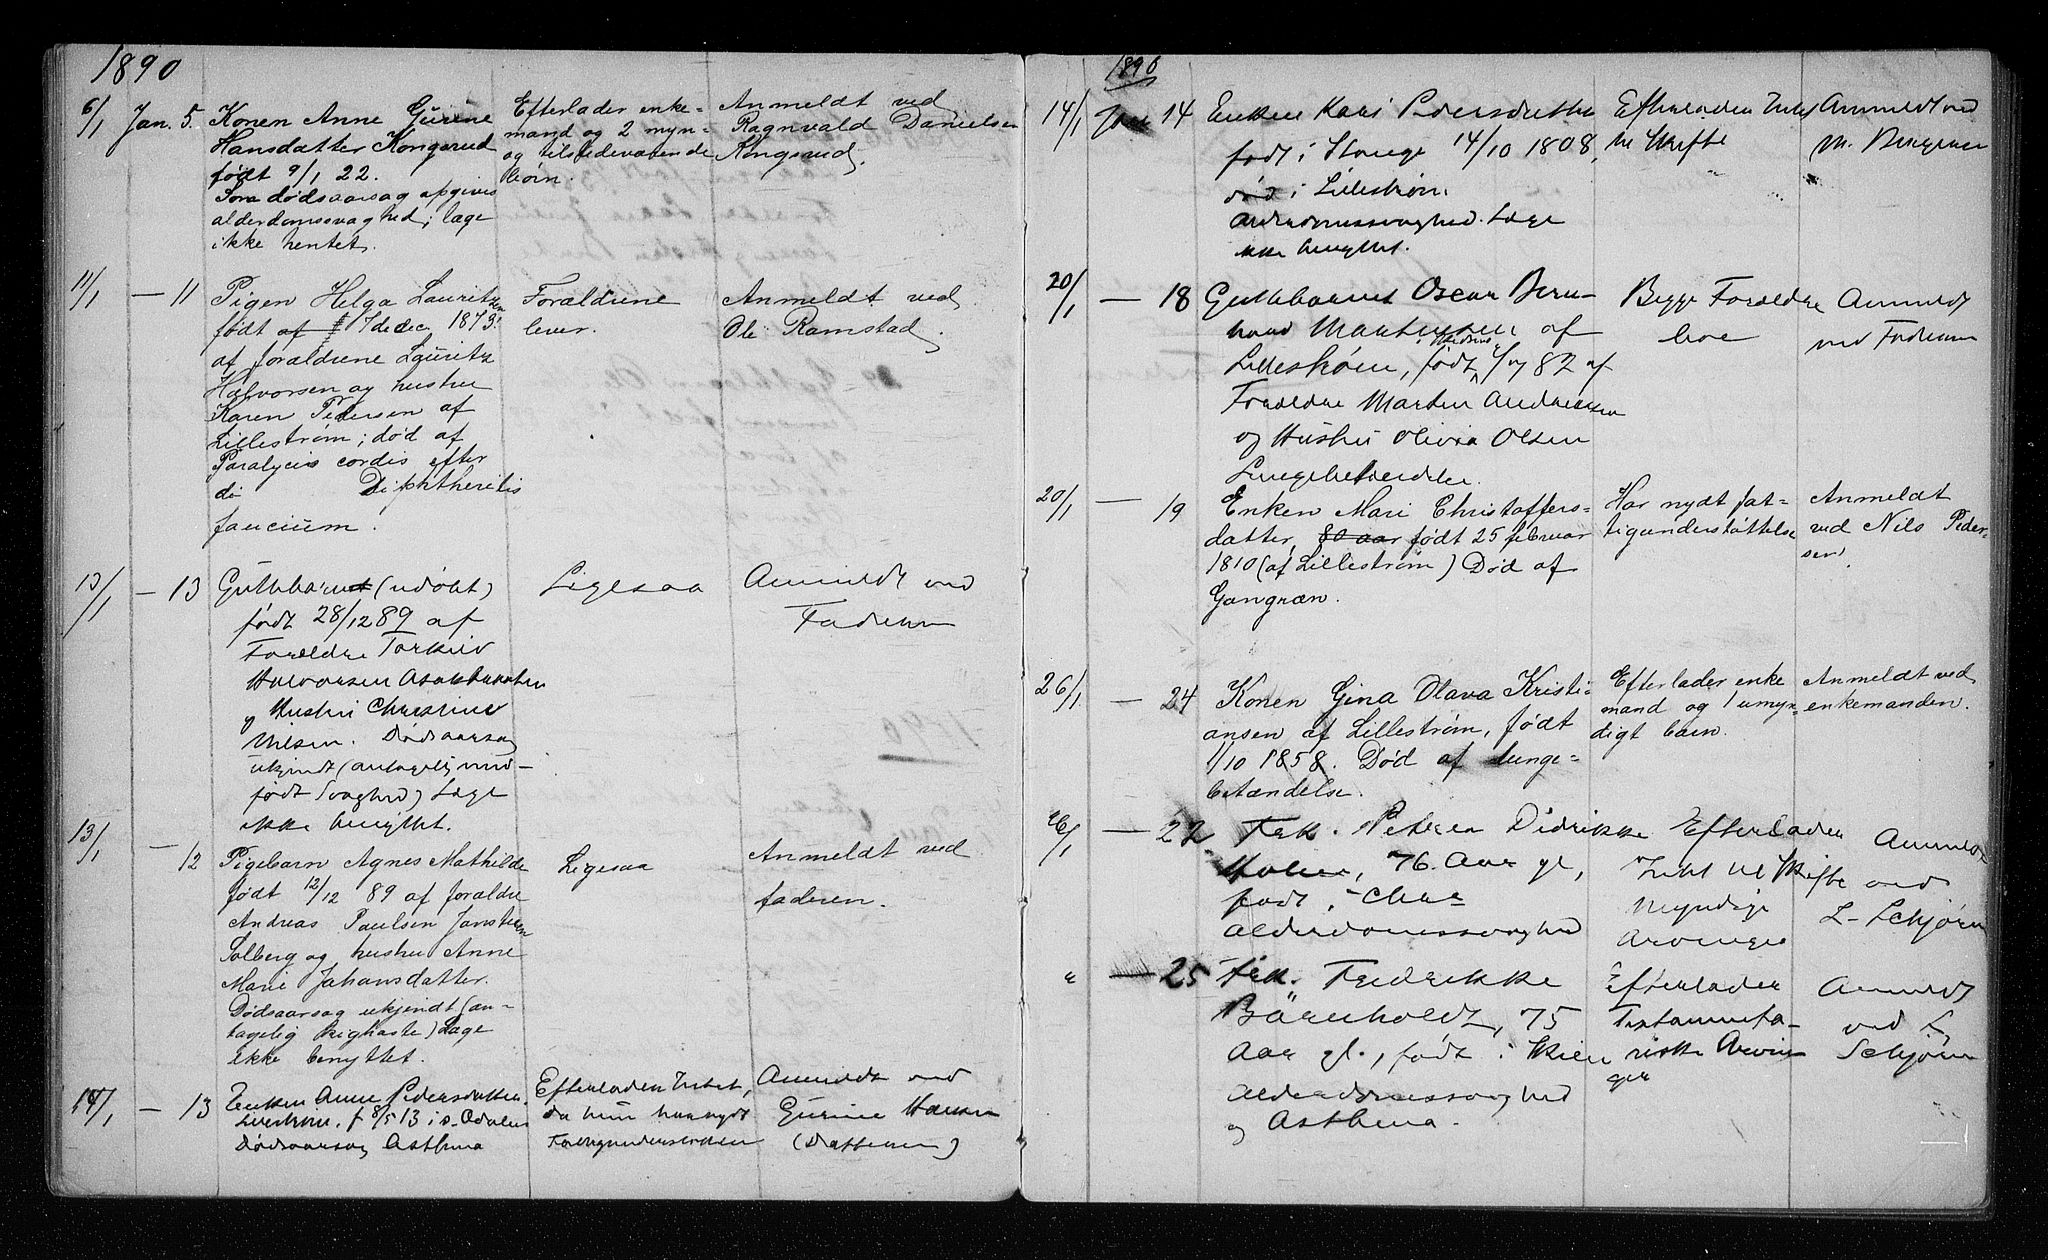 1890
6/1 Jan. 5. Konen Anne Gurine
Hansdatter Kongsrud
født 9/1 22.
Som dødsaarsag opgives
alderdomssvaghed; læge
ikke hentet.
Efterlader enke=
mand og 2 myn-
og tilstedeværende
børn.
Anmeldt ved
Ragnvald Danielsen
Kongsrud.
11/1 — 11 Pigen Helga Lauritzen
født 17de dec. 1873.
af forældrene Lauritz
Halvorsen og hustru
Karen Pedersen af
Lillestrøm; død af
Paralysis cordis efter
di Diphtheritis
faucium.
Forældrene
lever.
Anmeldt ved
Ole Ramstad.
13/1 — 13 Guttebarnet (udøbt)
født 28/12 89 af
Forældre Torkild
Halvorsen
og Hustru Christine
Nilsen. Dødsaarsag
ukjendt (antagelig med-
født Svaghed) Læge
ikke benyttet.
Ligesaa
Anmeldt ved
Faderen
13/1 — 12 Pigebarn Agnes Mathilde
født 12/12 89 af forældre
Andreas Paulsen
Solberg og hustru Anne
Marie Johansdatter.
Dødsaarsag ukjendt (an-
tagelig kighoste) Læge
ikke benyttet.
Ligesaa
Anmeldt ved
faderen.
14/1 — 13 Enken Anne Pedersdatter
Lillestrøm, f 8/5 13 i S. Odalen
Dødsaarsag Asthma
Efterlader Intet,
da hun har nydt
Fattigunderstøttelse
Anmeldt ved
Gurine Hansen
(Datteren)
1890
14/1 Jan 14 Enken Kari Pedersdatter
født i Stange 14/10 1808,
død i Lillestrøm.
Alderdomssvaghed. Læge
ikke benyttet.
Efterlader Intet
til Skifte
Anmeldt ved
M.
20/1 — 18 Guttebarnet Oscar Bern-
hard Martinsen af
Lillestrøm, født 82 af
Forældre Martin Andreassen
og Hustru Olivia Olsen
Lungebetændelse.
Begge Forældre
leve
Anmeldt
ved Faderen
20/1 — 19 Enken Mari Christoffers=
datter, 80 aar født 25 februar
1810 (af Lillestrøm) Død af
Gangræn.
Har nydt fat-
tigunderstøttelse
Anmeldt
ved Nils Peder-
sen.
26/1 — 24 Konen Gina Olava Kristi=
ansen af Lillestrøm, født
1/10 1858. Død af lunge=
betændelse.
Efterlader enke
mand og 1 umyn=
digt barn.
Anmeldt ved
enkemanden.
26/1 — 22. Frk. Petrea Didrikke
Holm, 76. Aar gl,
født i
Alderdomssvaghed
Efterlader
Intet til Skifte
Myndige
Arvinger
Anmeldt
ved
L. Schjørn
" — 25 Frk. Fredrikke
Börnholdt, 75
Aar gl., født i Skien
Alderdomssvaghed
og Asthma.
Efterlader
Testamenta-
riske Arvin
ger
Anmeldt
ved L
Schjørn